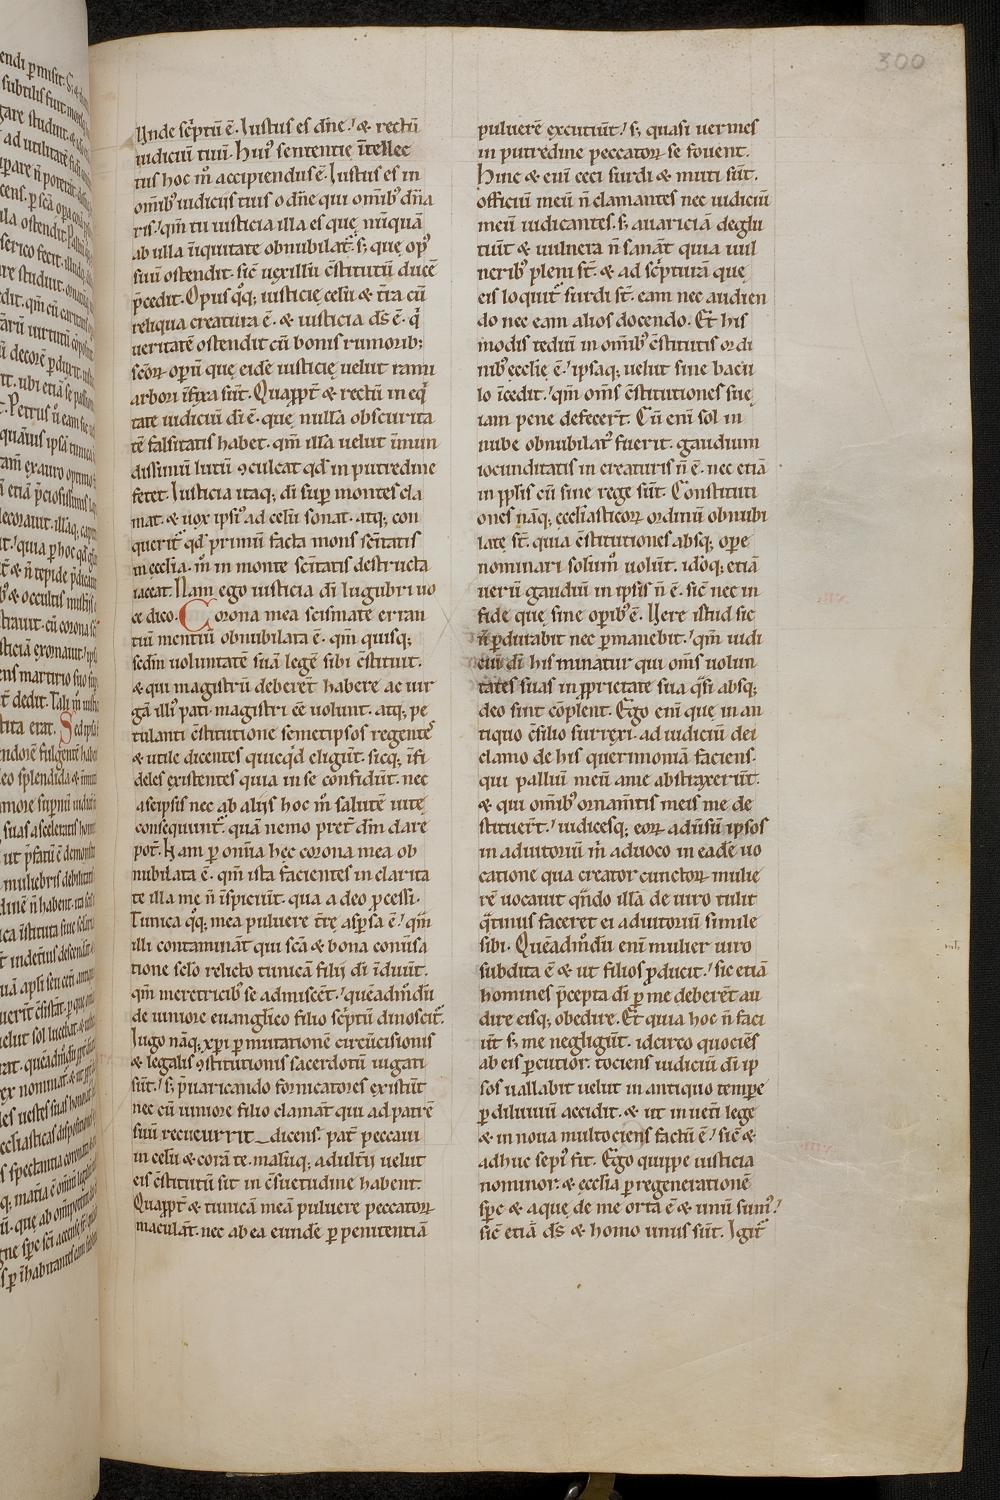 300
Unde sc̄ptū ē. Iustus es dn̄e. / & rectū
iudiciū tuū. Hui᾽ sententię ītellec
tus hoc m̄ accipiendus ē. Iustus es in
om̄ib᾽ iudiciis tuis o dn̄e qui om̄ib᾽ dn̄a
ris. / qm̄ tu iusticia illa es quę nūquā
ab ulla īiquitate obnubilat᷑. s; quę op᾽
suū ostendit. sic uęxillū c̄stitutū ducē
p̄cedit. Opus q̊q; iusticię celū & t̄ra cū
reliqua creatura ē. & iusticia ds̄ ē. q̄
ueritatē ostendit cū bonis rumorib;
sc̄oꝝ opeꝝ que eidē iusticię uelut rami
arbori īfixa sūt. Quapp̄t & rectū in eq̇
tate iudiciū di ē. que nulla obscurita
tē falsitatis habet. qm̄ illa uelut īmun
dissimū lutū ꝯculcat qd̄ in putredine
fetet. Iusticia itaq; di sup montes cla
mat. & uox ipsi᾽ ad celū sonat. atq; con
querit᷑ qd̄ primū facta mons sc̄itatis
in ecclīa. m̄ in monte sc̄itatis destructa
iaceat. Nam ego iusticia di lugubri uo
ce dico. Corona mea scismate erran
tiū mentiū obnubilata ē. qm̄ quisq;
scd̄m uoluntatē suā legē sibi c̄stituit.
& qui magistrū deberet habere ac uir
gā illi᾽ pati. magistri ee uolunt. atq; pe
tulanti c̄stitutione semetipsos regentes
& utile dicentes quicq̇d eligūt. sicq; īfi
deles existentes quia in se confidūt. nec
a seipsis nec ab aliis hoc m̄ salutē uitę
consequunt᷑. quā nemo pret̄ dm̄ dare
pot̄. Nam ꝑ omīa hęc corona mea ob
nubilata ē. qm̄ ista facientes in clarita
te illa me n̄ īspiciūt. qua a deo pcessi.
Tunica q̊q; mea puluere t̄rę asp̄sa ē. / qm̄
illi contamināt qui sc̄a & bona conūsa
tione sclo relicto tunicā filii di īduūt.
qm̄ meretricib᾽ se admiscēt. / quēadm̄dū
de iuniore euangl̄ico filio sc̄ptū dinoscit᷑.
Iugo nāq; xp̄i ꝑ mutationē circūcisionis
& legalis ꝯstitutionis sacerdotū iugati
sūt. / s; p̄uaricando fornicatores existūt
nec cū iuniore filio clamāt qui ad patrē
suū recucurrit dicens. pat̄ peccaui
in celū & corā te. malūq; adulterii uelut
eis c̄stitutū sit in c̄suetudinē habent.
Quapp̄t & tunicā meā puluere peccatoꝝ
maculāt. nec ab ea eundē ꝑ penitentiā
puluerē excutiūt. / s; quasi uermes
in putredine peccatoꝝ se fouent.
Hinc & enī ceci surdi & muti sūt.
officiū meū n̄ clamantes nec iudiciū
meū iudicantes. s; auariciā deglu
tiūt & uulnera n̄ sanāt quia uul
nerib᾽ pleni st̄. & ad sc̄pturā quę
eis loquit᷑ surdi st̄. eam nec audien
do nec eam alios docendo. Et his
modis tediū in om̄ib᾽ c̄stitutis ordi
nib᾽ ecclīe ē. / ipsaq; uelut sine bacu
lo īcedit. / qm̄ om̄s c̄stitutiones suę
iam pene defecer̄t. Cū enī sol in
nube obnubilat᾽ fuerit. gaudium
iocunditatis in creaturis n̄ ē. nec etiā
in pplīs cū sine rege sūt. Constituti
ones nāq; eccl̄iasticoꝝ ordinū obnubi
late st̄. quia c̄stitutiones absq; ope
nominari solūm̊ uolūt. idōq; etiā
uerū gaudiū in ipsis n̄ ē. sic̄ nec in
fide que sine opib᾽ ē. Vere istud sic
n̄ pdurabit nec ꝑmanebit. / qm̄ iudi
ciū di his minatur qui om̄s uolun
tates suas in pprietate sua q̇si absq;
deo sint cōplent. Ego enī que in an
tiquo c̄silio surrexi. ad iudiciū dei
clamo de his querimoniā faciens.
qui palliū meū a me abstraxerūt.
& qui om̄ib᾽ ornam̄tis meis me de
stituer̄t. / iudicesq; eoꝝ adūsū ipsos
in adiutoriū m̄ aduoco in eadē uo
catione qua creator cunctoꝝ mulie
rē uocauit qn̄do illā de uiro tulit
q̄tinus faceret ei adiutoriū simile
sibi. Quēadm̄dū enī mulier uiro
subdita ē & ut filios pducit. / sic etiā
homines p̄cepta di ꝑ me deberēt au
dire eisq; obedire. Et quia hoc n̄ faci
ūt s; me negligūt. idcirco quociēs
ab eis ꝑcutior. tociens iudiciū di ip
sos uallabit uelut in antiquo tempe
ꝑ diluuiū accidit. & ut in uet̄i lege
& in noua multociens factū ē. / sic̄ &
adhuc sepi᾽ fit. Ego quippe iusticia
nominor. & ecclīa ꝑ regenerationē
sp̄c & aquę de me orta ē & unū sum᾽. /
sic̄ etiā ds̄ & homo unus sūt. Igit᷑